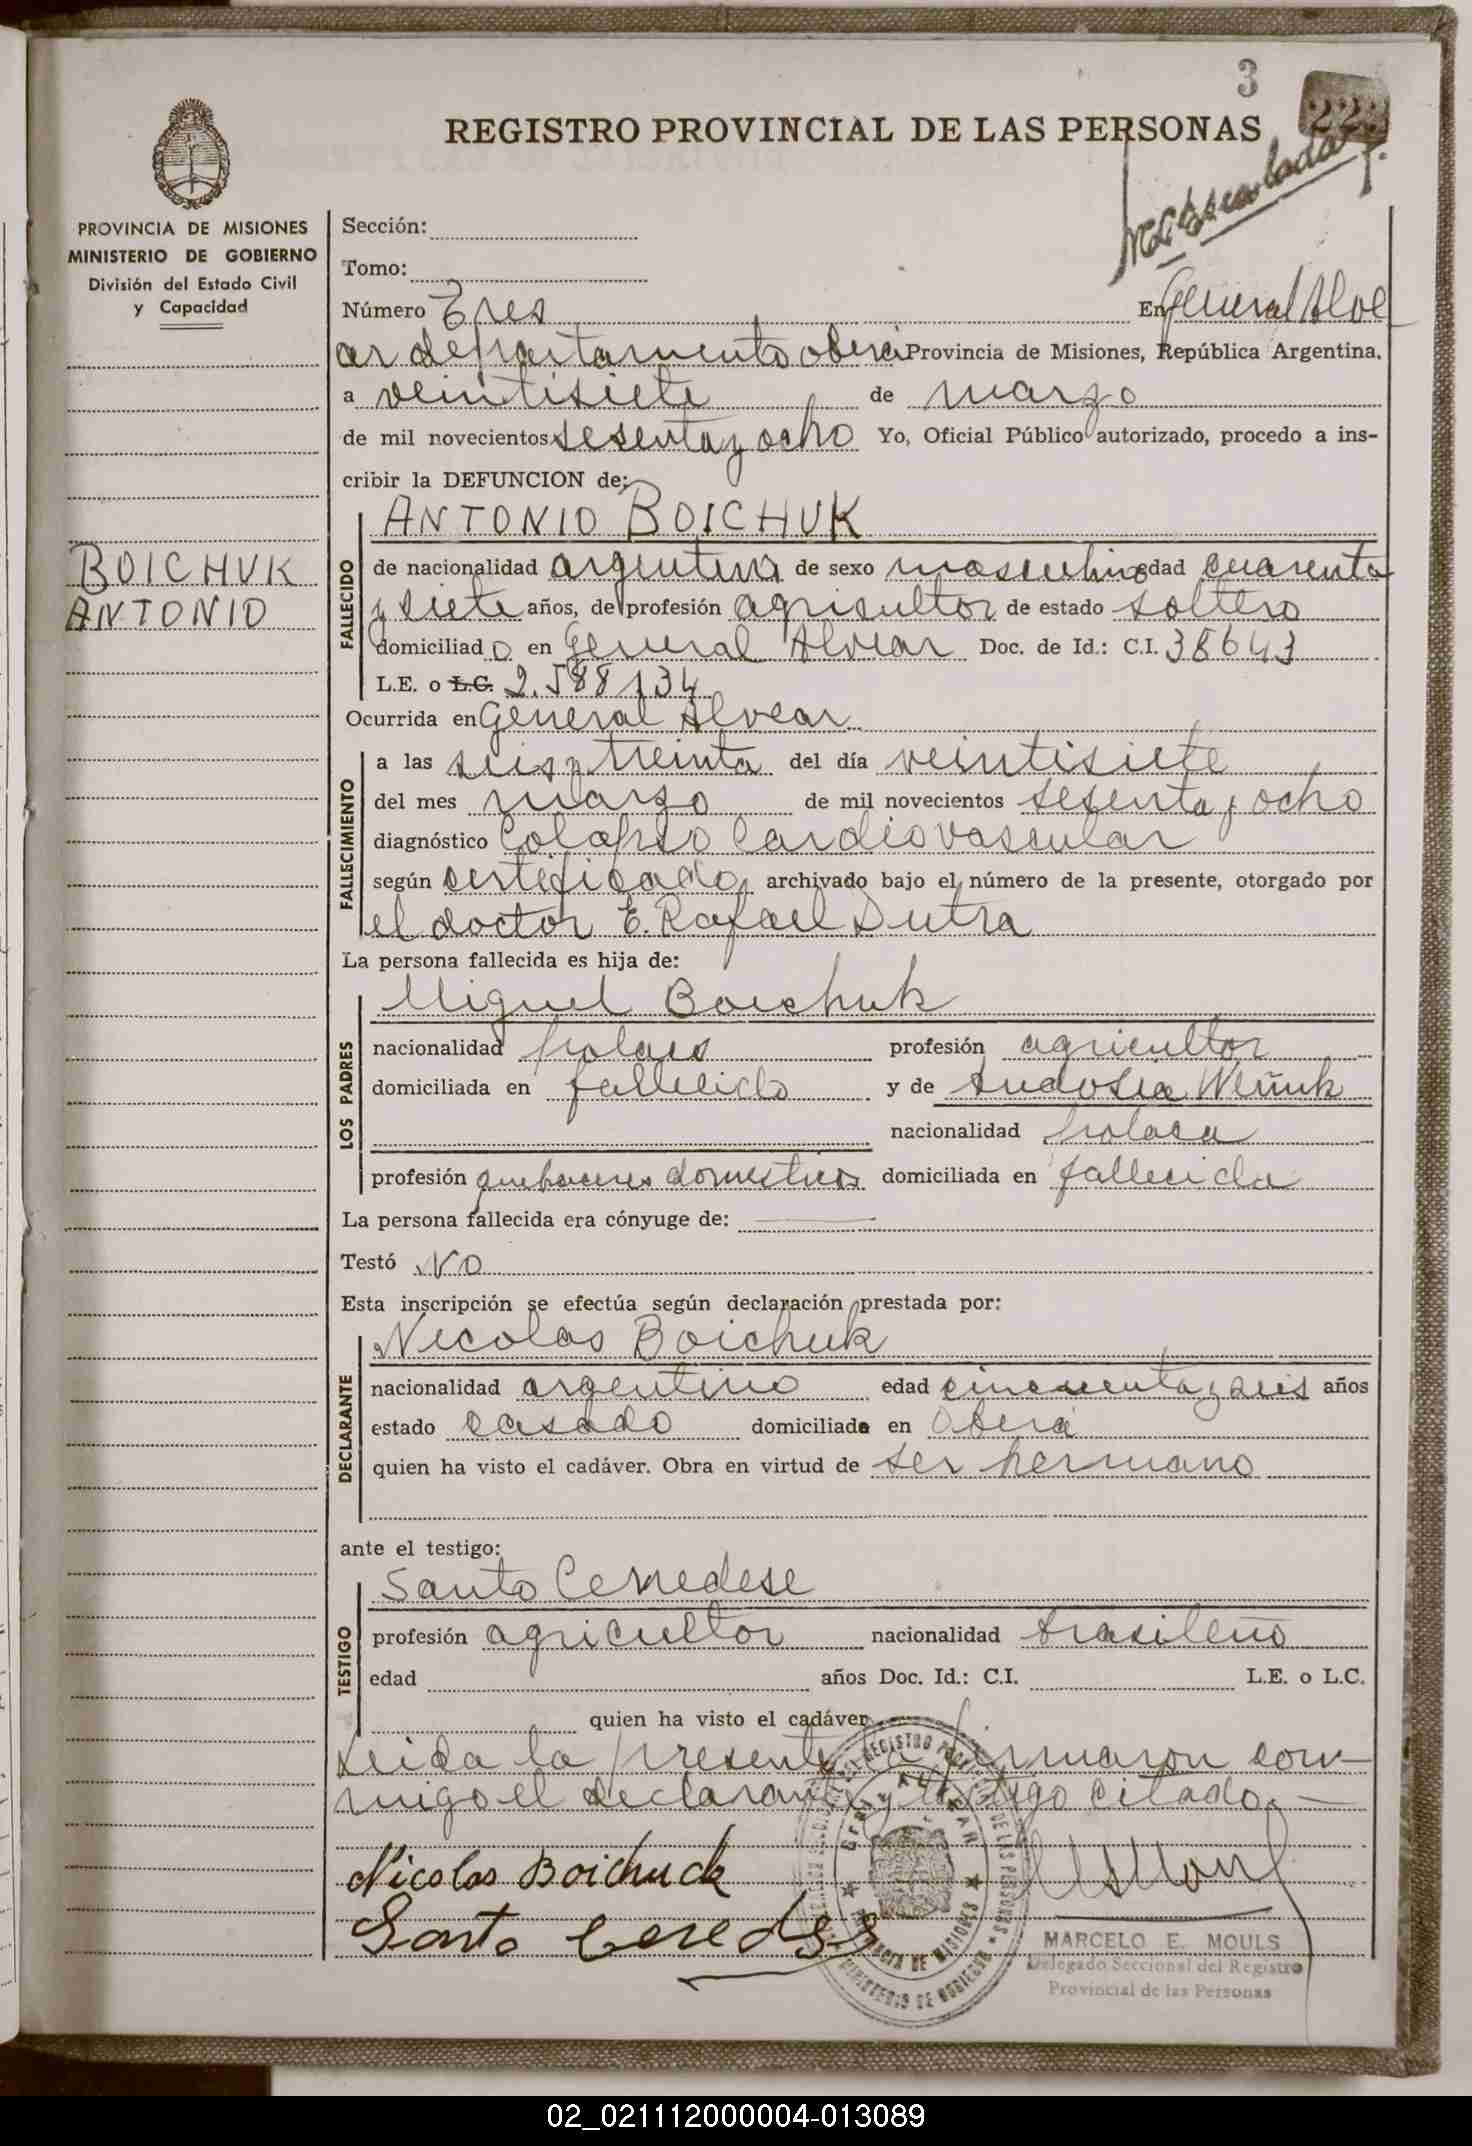 3
222
REGISTRO PROVINCIAL DE LAS PERSONAS
PROVINCIA DE MISIONES
MINISTERIO DE GOBIERNO
División del Estado Civil
y Capacidad
BOICHUK
ANTONIO
Sección:
Tomo:
Número Tres En General Alve
ar departamento oberá Provincia de Misiones, República Argentina.
a veintisiete de marzo
de mil novecientos sesenta y ocho Yo, Oficial Público autorizado, procedo a ins-
cribir la DEFUNCION de:
ANTONIO BOICHUK
FALLECIDO
de nacionalidad argentina de sexo masculino edad cuarenta
y siete años, de profesión agricultor de estado soltero
domiciliad o en General Alvear Doc. de Id.: C.I. 38643
L.E. o L.C. 2.588134
Ocurrida en General Alvear
FALLECIMIENTO
a las seis y treinta del día veintisiete
del mes marzo de mil novecientos sesenta y ocho
diagnóstico Colapso Cardiovascular
según certificado archivado bajo el número de la presente, otorgado por
el doctor E. Rafael Dutra
La persona fallecida es hija de:
LOS PADRES
Miguel Boichuk
nacionalidad polaco profesión agricultor
domiciliada en fallecido y de
nacionalidad polaca
profesión quehaceres domesticos domiciliada en fallecida
La persona fallecida era cónyuge de:
Testó No
Esta inscripción se efectúa según declaración prestada por:
DECLARANTE
Nicolas Boichuk
nacionalidad argentino edad cincuenta y seis años
estado casado domiciliado en Oberá
quien ha visto el cadáver. Obra en virtud de ser hermano
ante el testigo:
TESTIGO
Santo Cenedese
profesión agricultor nacionalidad brasileño
edad años Doc. Id.: C.I. L.E. o L.C.
quien ha visto el cadáver
Leida la presente la firmaron con-
migo el declarante y testigo citado.
Nicolas Boichuck
Santo
GRAL. ALVEAR
PROVINCIA DE MISIONES
MINISTERIO DE GOBIERNO
MARCELO E. MOULS
Delegado Seccional del Registro
Provincial de las Personas
02_021112000004-013089